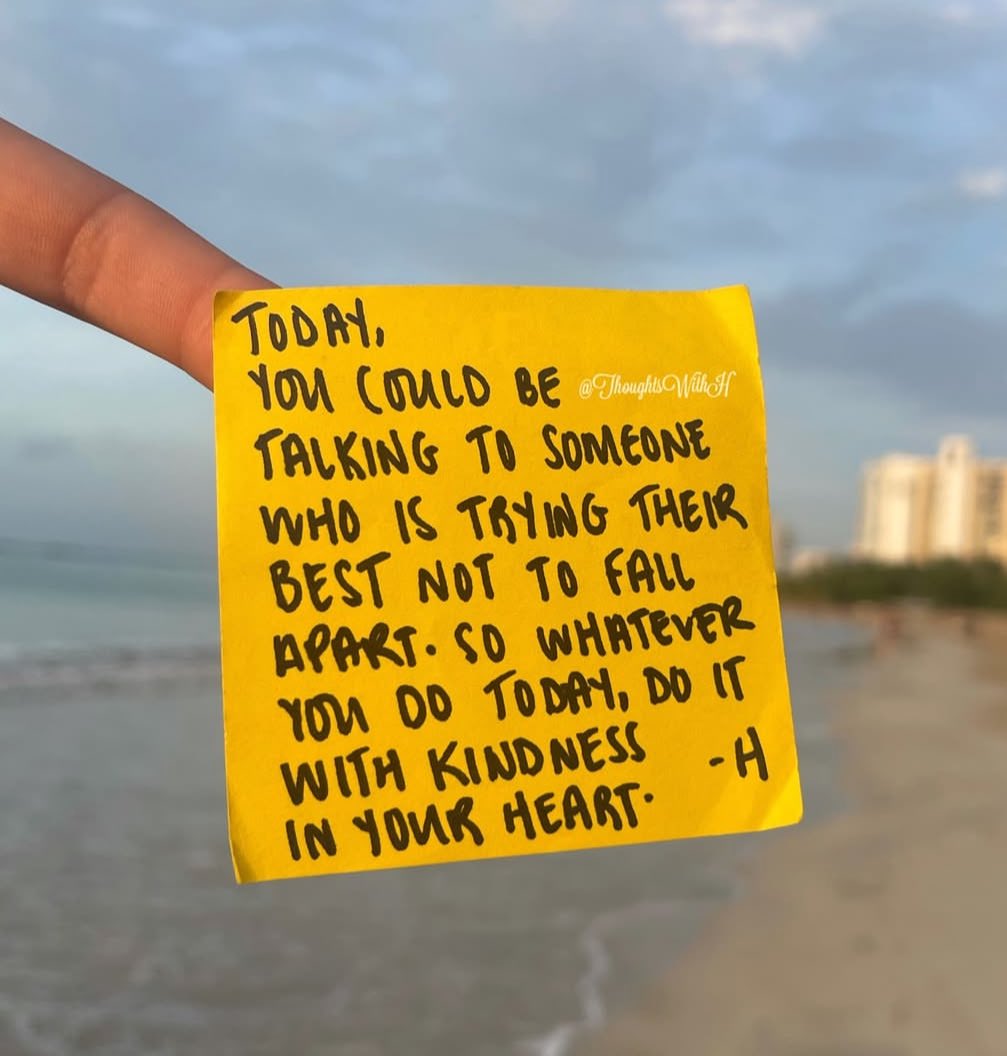 TODAY,
YOU COULD BE @ThoughtsWithH
TALKING TO SOMEONE
WHO IS TRYING THEIR
BEST NOT TO FALL
APART. SO WHATEVER
YOU DO TODAY, DO IT
WITH KINDNESS -H
IN YOUR HEART.